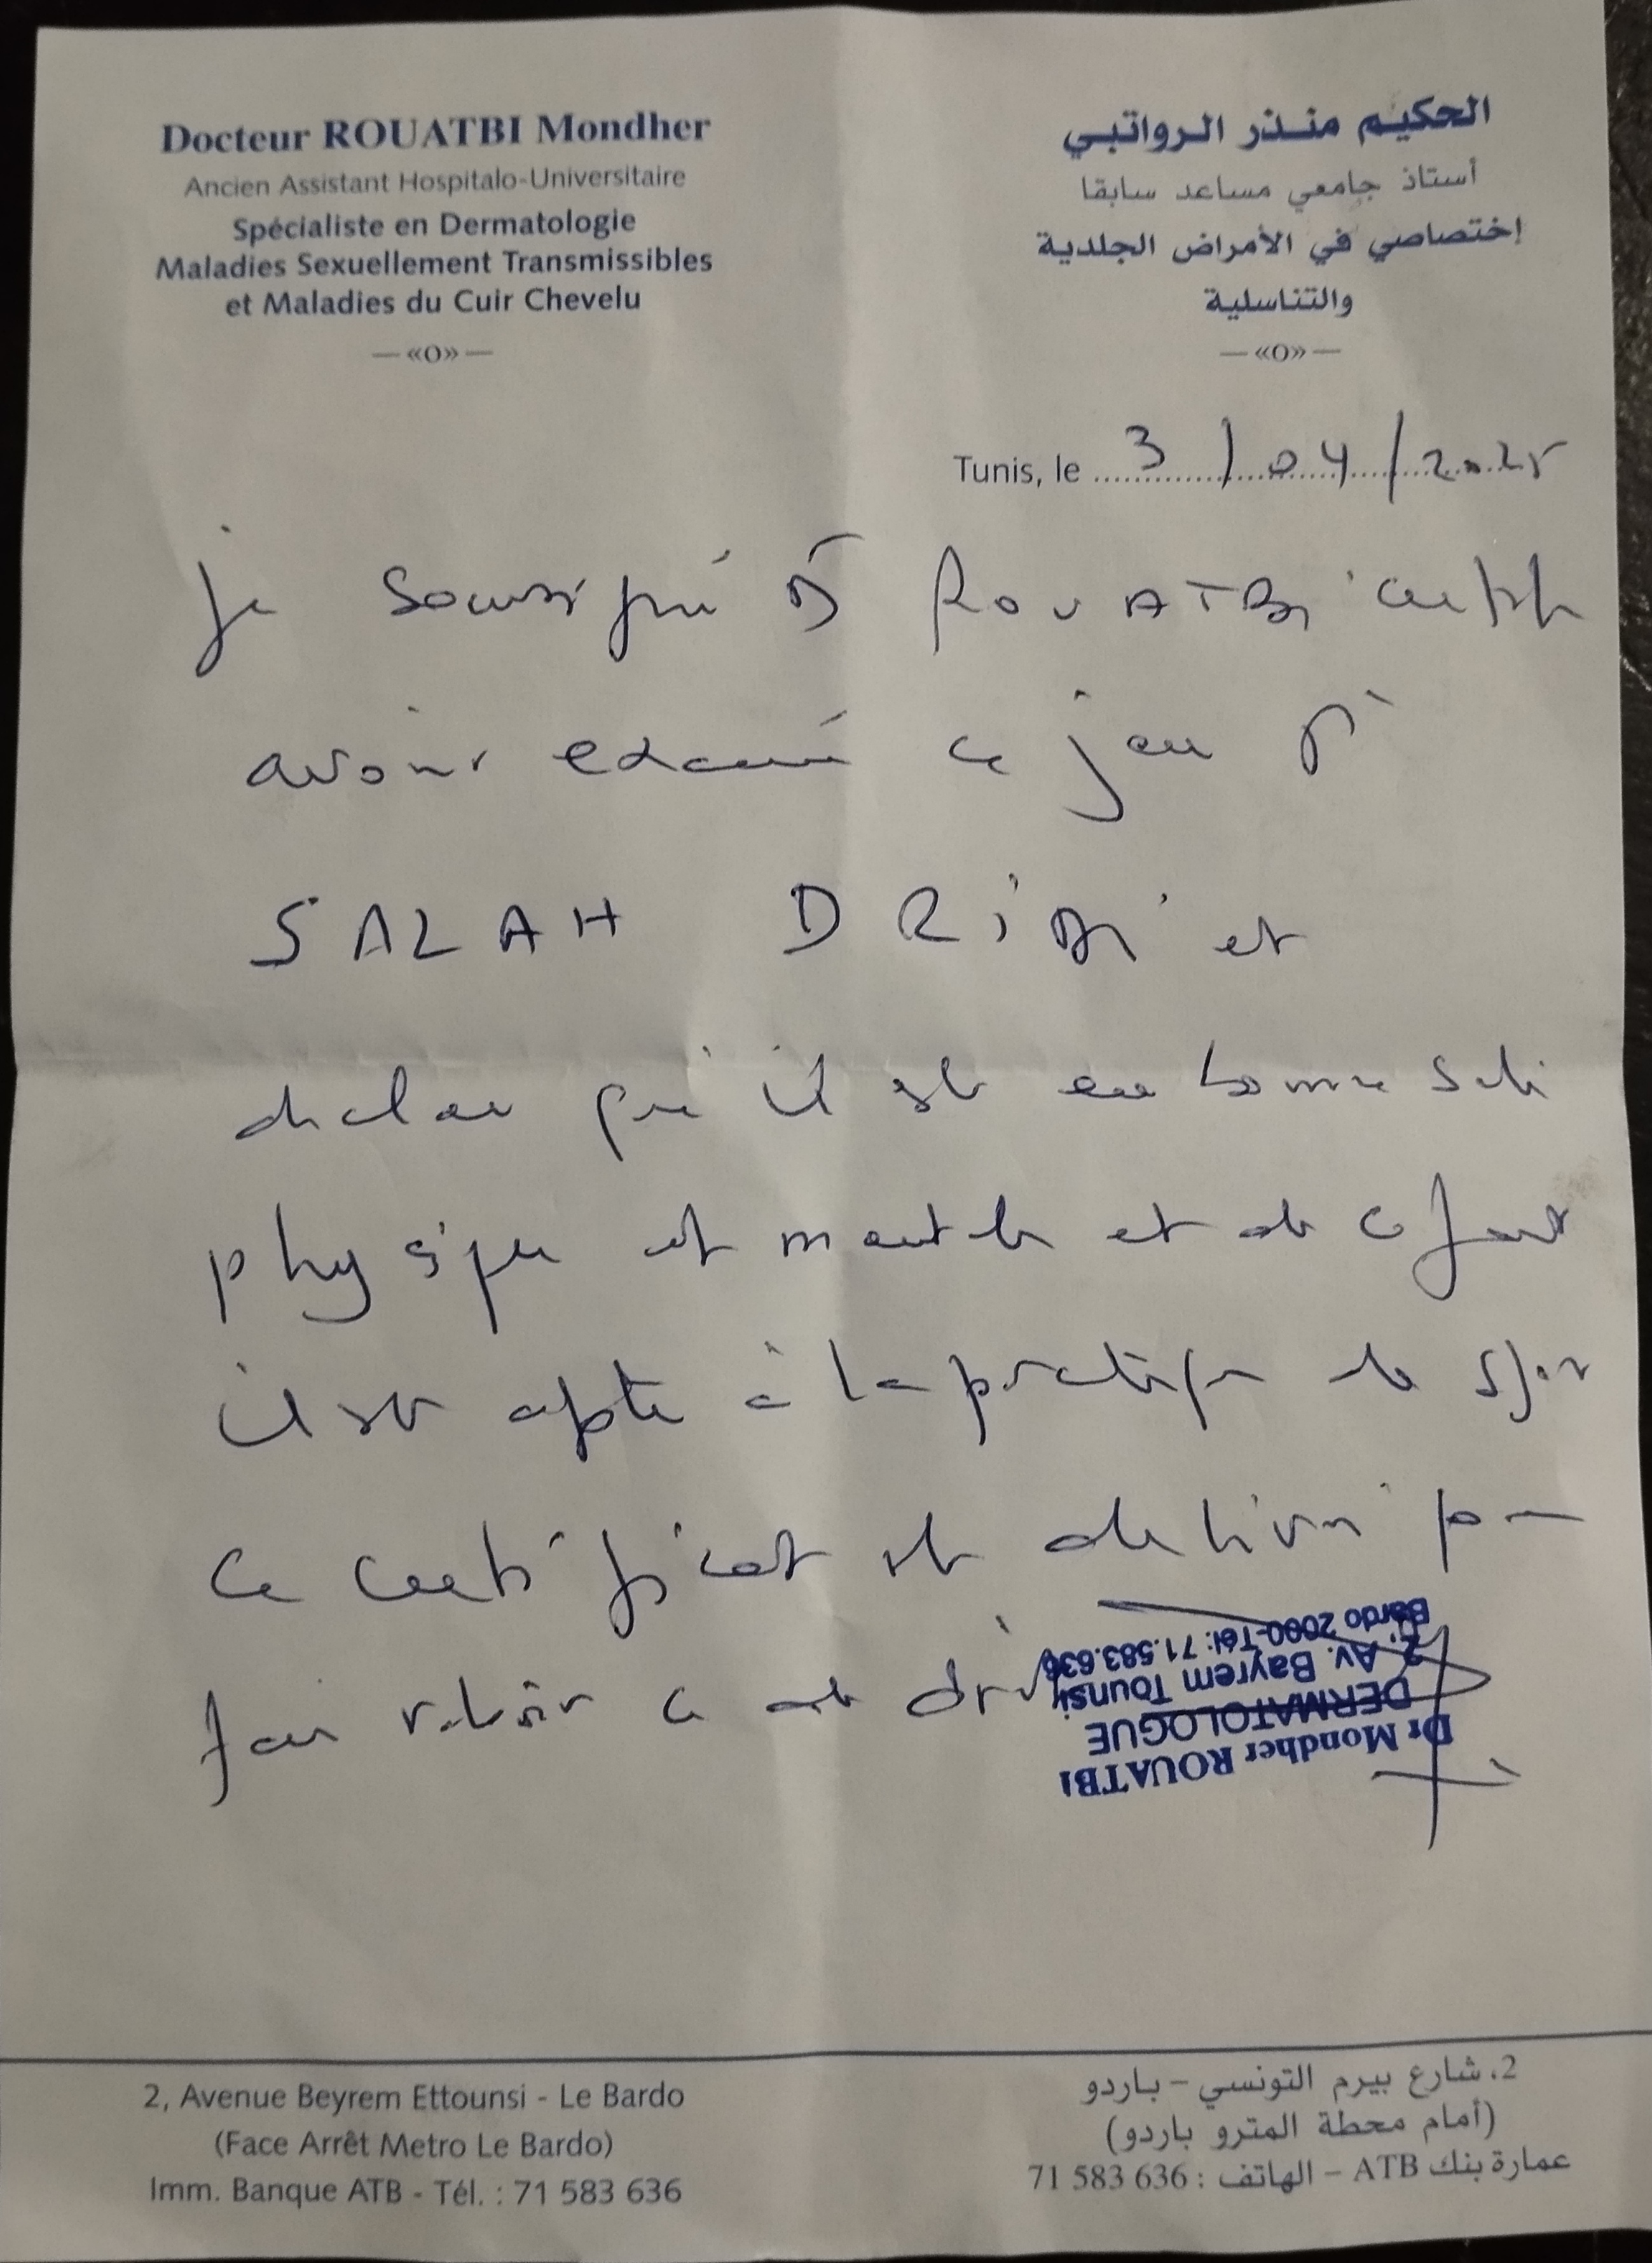 Docteur ROUATBI Mondher
Ancien Assistant Hospitalo-Universitaire
Spécialiste en Dermatologie
Maladies Sexuellement Transmissibles
et Maladies du Cuir Chevelu
— «O» —
الحكيم منذر الرواتبي
أستاذ جامعي مساعد سابقا
إختصاصي في الأمراض الجلدية
والتناسلية
— «O» —
Tunis, le 3/04/2025
Je soussigné Dr ROUATBi certifie
avoir examiné ce jour
SALAH DRiBi et
déclare qu'il est en bonne santé
physique et mentale et de ce fait
il est apte à la pratique de sport
Ce certificat est délivré pour
faire valoir ce que de droit
Dr Mondher ROUATBI
DERMATOLOGUE
2, Av. Bayrem Tounsi
Bardo 2000-Tél: 71.583.636
2, Avenue Beyrem Ettounsi - Le Bardo
(Face Arrêt Metro Le Bardo)
Imm. Banque ATB - Tél. : 71 583 636
2، شارع بيرم التونسي – باردو
(أمام محطة المترو باردو)
عمارة بنك ATB – الهاتف : 636 583 71